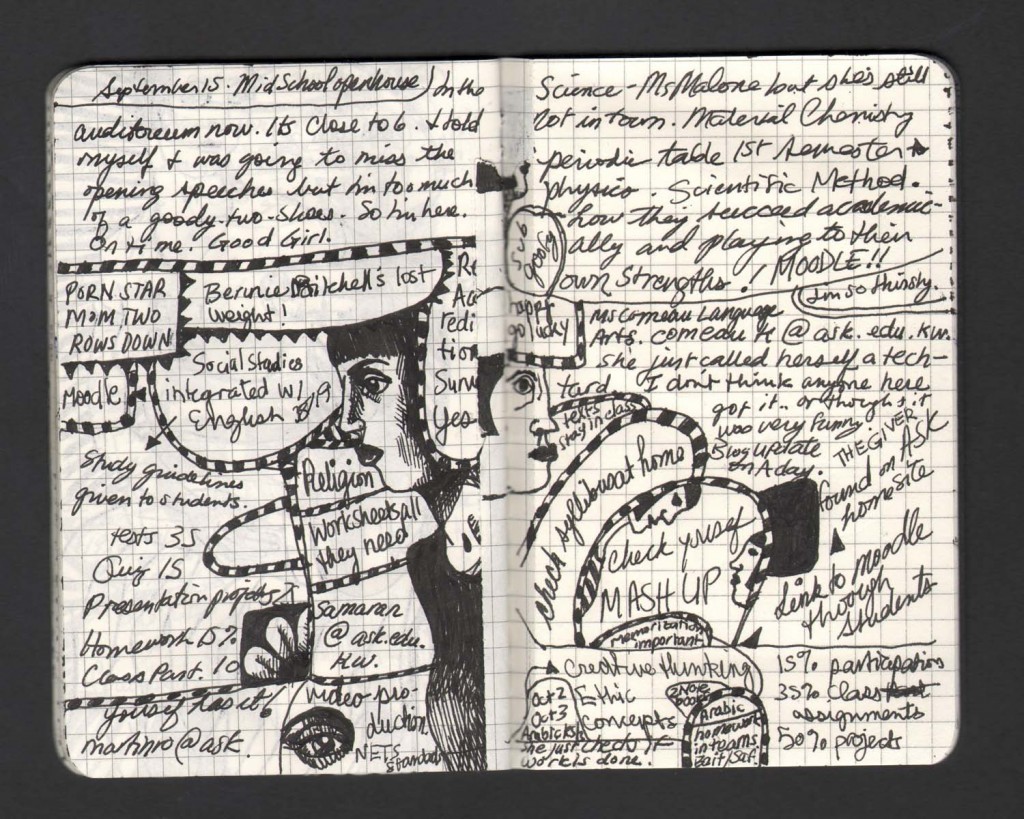 September 15. Mid School openhouse) In the
auditoreum now. Its close to 6. I told
myself I was going to miss the
opening speeches but I'm too much
of a goody-two-shoes. So I'm here.
On time. Good Girl.
PORN STAR
MOM TWO
ROWS DOWN
Bernice Mitchell's lost
weight!
Moodle
Social Studies
integrated w/
English
Study guidelines
given to students.
tests 35
Quiz 15
Presentation projects
Homework 15%
Class Part. 10
yourself has it!
martinro@ask.
Religion
Worksheets all
they need
Samaran
@ask.edu.
KW.
video pro-
duction.
NETS
standard
Re
Ac
redi
tion
Surv
Yes
Science - Ms Malone but she's still
not in town. Material Chemistry
periodic table 1st Semester
physics. Scientific Method.
How they succeed academic-
ally and playing to their
own Strengths! MOODLE!!
I'm so thirsty.
Sub
goofy
happy
go lucky
Ms Comeau Language
Arts. comeau K @ask.edu.kw.
she just called herself a tech-
tard I don't think anyone here
got it.. or thought it
was very funny.
Blog update
on A day.
texts
stay in class
THE GIVER
found on ASK
homesite
check syllibus at home
check yurself
MASH UP
Link to moodle
through
students
Memorization
important
Creative thinking
Ethic
concepts
Oct 2
Oct 3
Arabic
she just check if
work is done.
2 Note
books
Arabic
homework
in teams
15% participation
35% class
assignments
50% projects